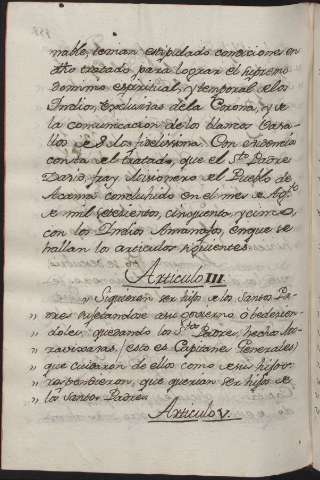 nable, tenian estipulado condiciones en
dho tratado, para lograr el supremo
dominio espiritual, y temporal de los
Indios, exclusivas de la Corona, y de
la comunicacion de los blancos Vasa-
llos de S. M. fidelissima. Con evidencia
consta el tratado, que el Sto Padre
David, fray Misionero de el Pueblo de
concluhido en el mes de Agto
de mil setecientos, cinquenta y cinco,
con los Indios Amanajos, en que se
hallan los articulos siguientes.
Articulo III.
„ Si querian ser hijos de los Santos Pa-
„ dres sujetandose a su governo, ò obedecien-
„ doles, quedando los Stos Padres, hechos
„ (esto es Capitanes Generales)
„ que cuidaron de ellos como de sus hijos:
„ respondieron, que querian ser hijos de
„ los Santos Padres
Articulo V.